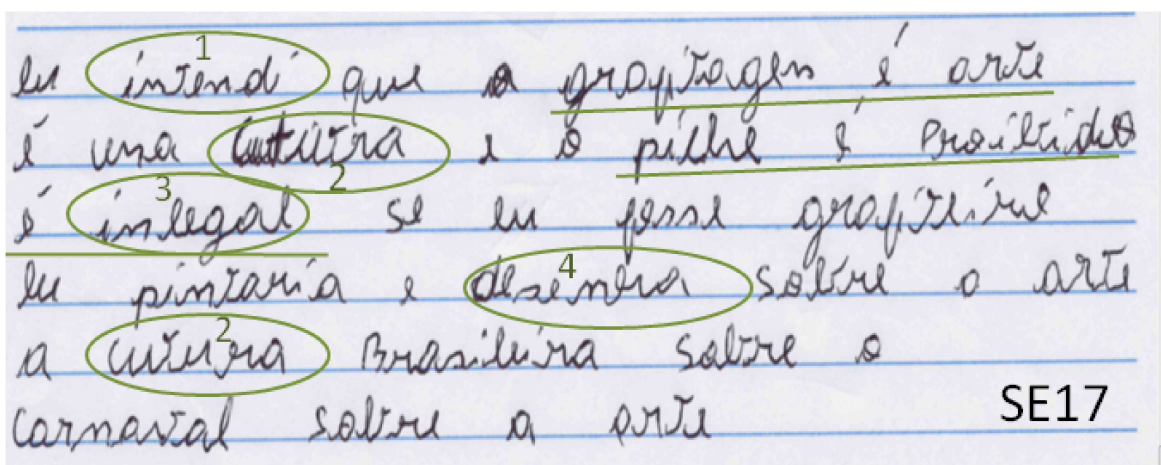 eu intendi que a grafitagen é arte
é uma cutura e o piche é Proibido
é inlegal se eu fosse grafiteiro
eu pintaria e desenha sobre o arte
a cutura Brasileira sobre o
carnaval sobre a arte
1
2
3
4
2
SE17